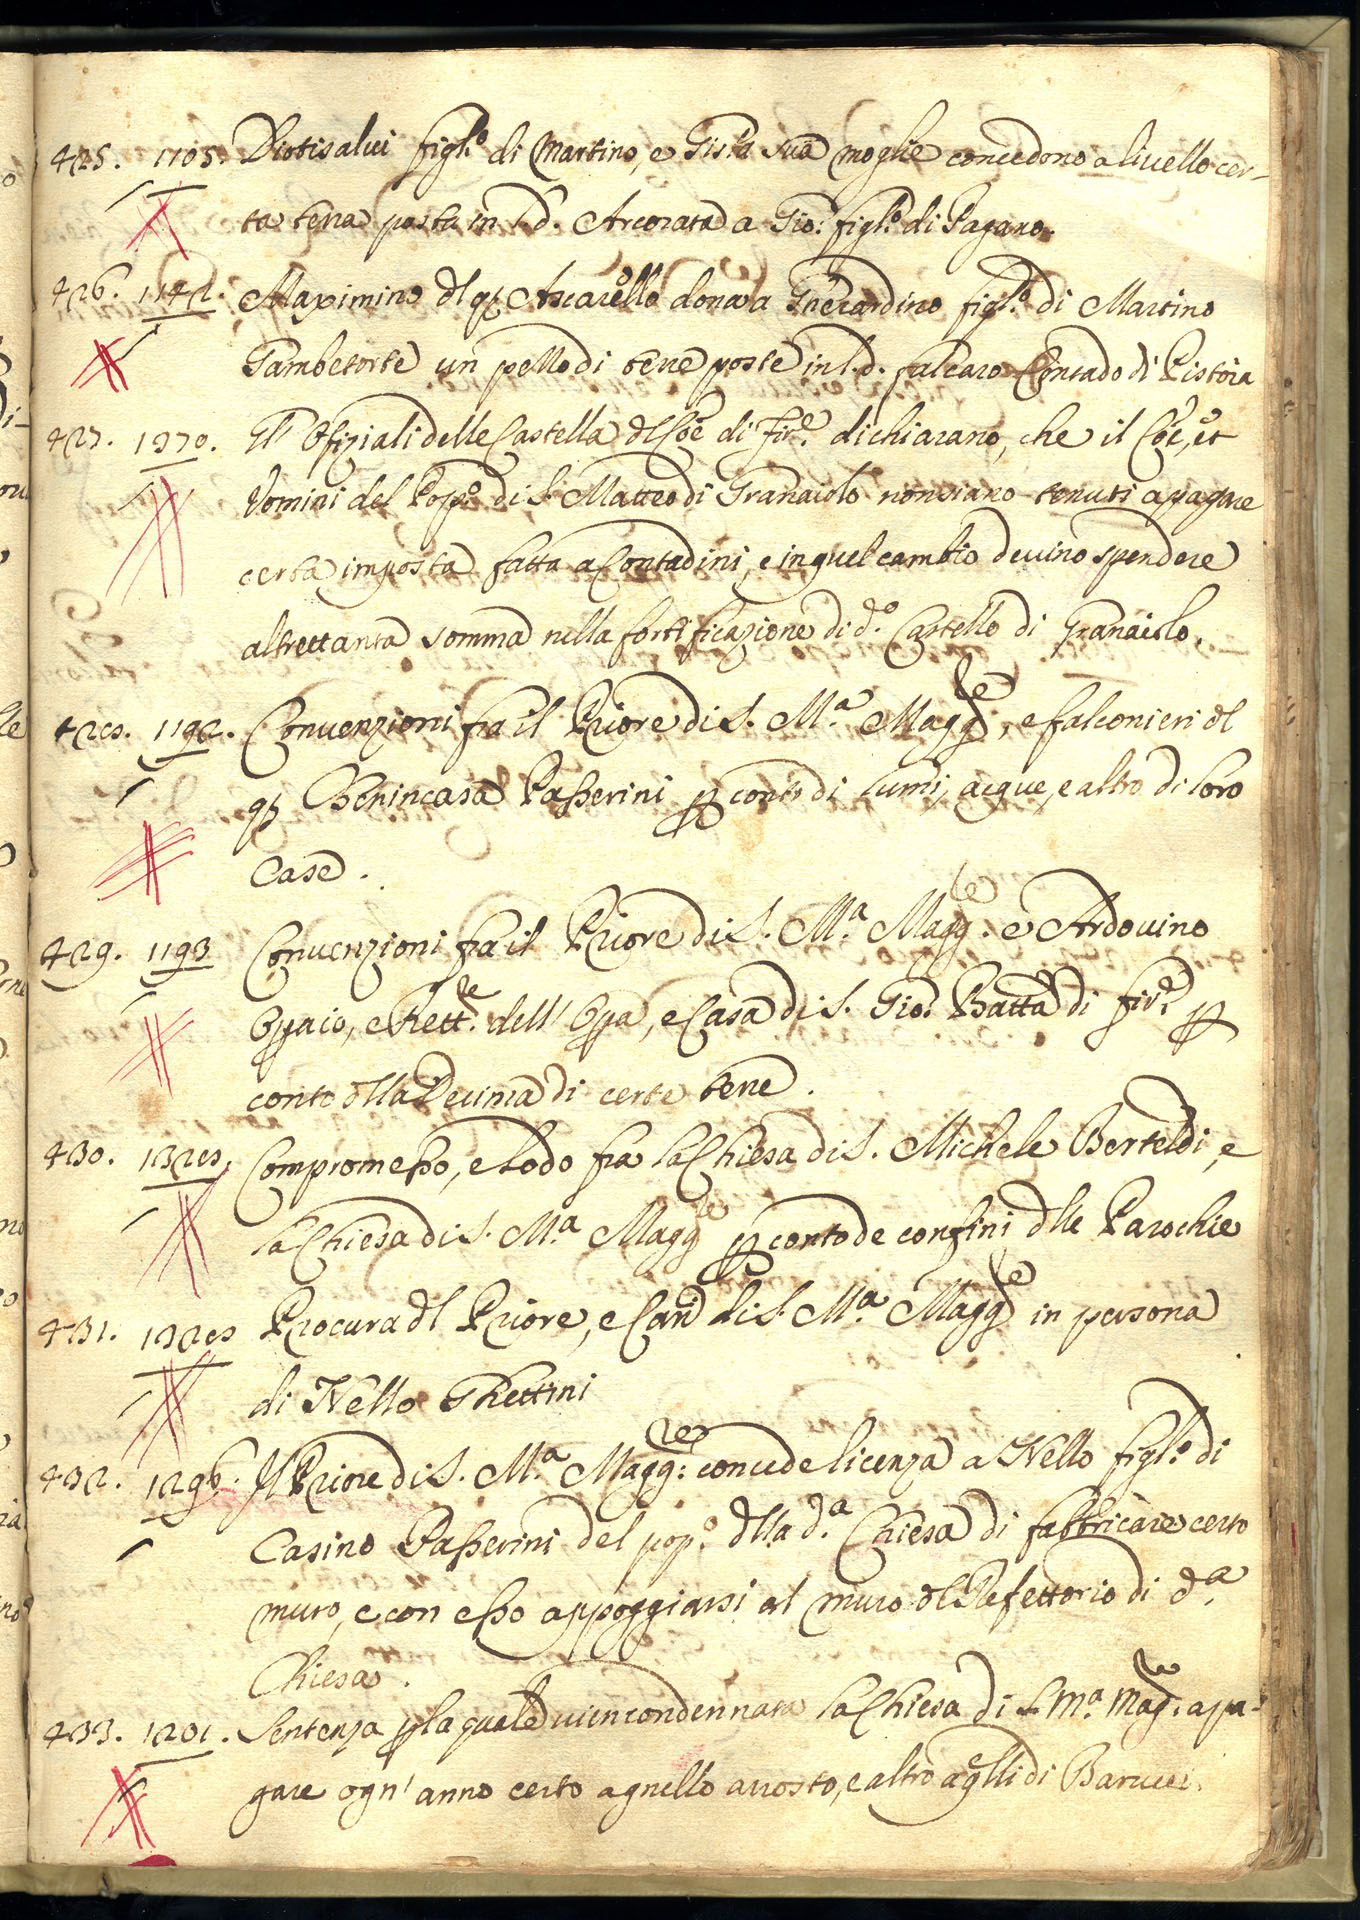 425. 1105. Diotisalvi figl.º di Martino, e Gisla sua moglie concedono a livello cer-
ta terra posta in l.d. Arcorata a Gio: figl.º di Pagano.
426. 1142. Maximino dl qp Ascarello dona a Gherardino figl.º di Martino
Gambetorte un pezzo di terre poste in l.d. falcaro Contado di Pistoia
427. 1370. Gl' Ofiziali delle Castella dl Coe di Fir.e dichiarano, che il Coe, et
Vomini del Popp.º di S. Matteo di Granaiolo non siano tenuti a pagare
certa imposta fatta a Contadini, e in quel cambio devino spendere
altrettanta somma nella fortificazione di d.º Castello di Granaiolo.
428. 1192. Convenzioni fra il Priore di S. M.a Magg.re, e falconieri dl
qp Benincasa Passerini p conto di lumi, acque, e altro di loro
Case.
429. 1193 Convenzioni fra il Priore di S. M.a Magg.re e Ardovino
Oppaio, e Rett.re dell' Oppa, e Casa di S. Gio: Batta di fir.e p
conto dlla Decima di certe terre.
430. 1328. Compromesso, e Lodo fra la Chiesa di S. Michele Berteldi, e
la Chiesa di S. M.a Magg.re p conto de confini dlle Parochie
431. 1328 Procura dl Priore, e Can.ci di S. M.a Magg.re in persona
di Nello Ghettini
432. 1296. Il Priore di S. M.a Magg.re concede licenza a Nello figl.º di
Casino Passerini del pop.º dlla d.a Chiesa di fabbricare certo
muro, e con esso appoggiarsi al muro dl Refettorio di d.a
Chiesa.
433. 1201. Sentenza p la quale vien condennata la Chiesa di S. M.a Mag.re a pa-
gare ogn' anno certo agnello arrosto, e altro a qlli di Barucci.